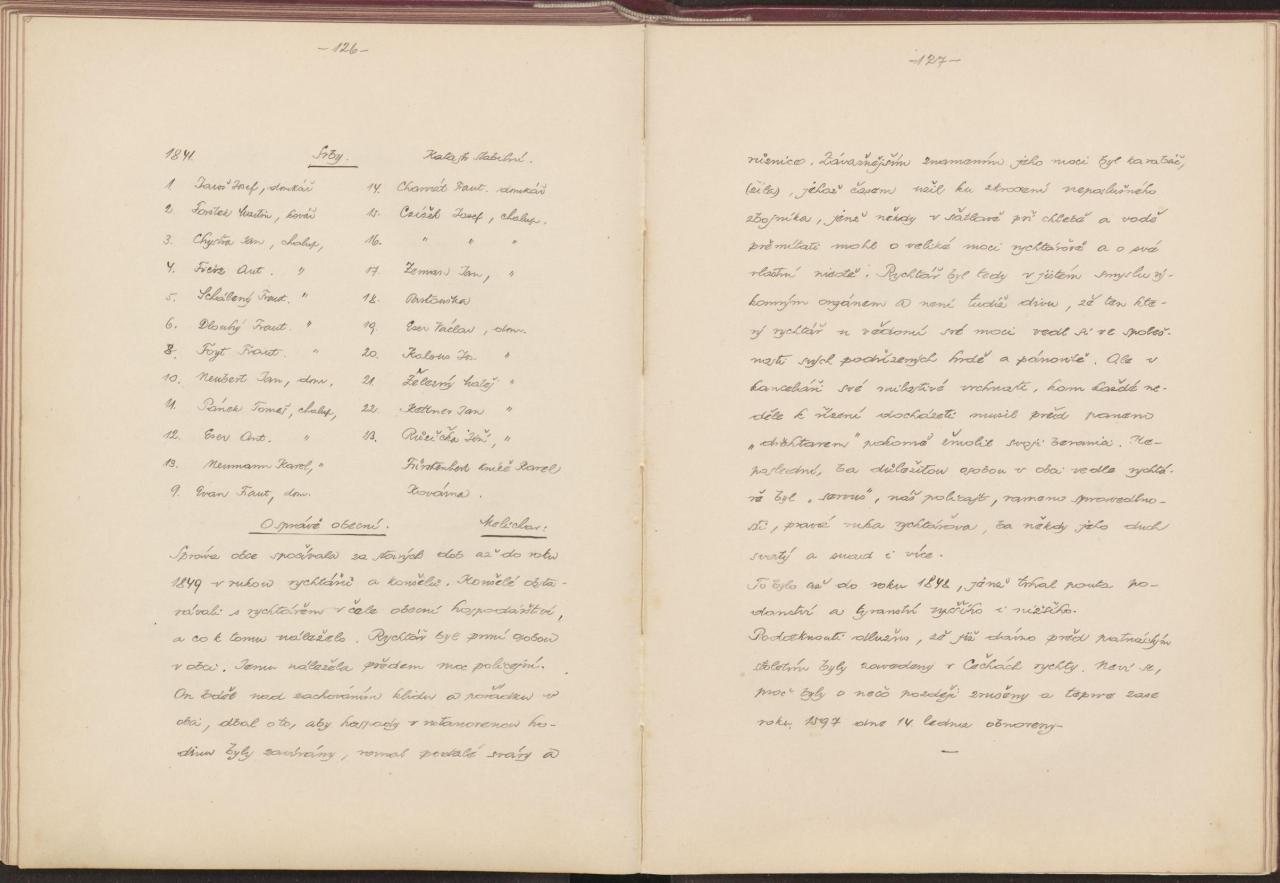 – 126 –
1841. Srby. Katastr stabilní.
1 Josef, domkář
14. Charvát Frant. domkář
2 Martin, kovář
15. Josef, chalup.
3. Chytra Jan, chalup,
16. " " "
4. Ant. "
17. Zeman Jan, "
5. Frant. "
18. Pastouška
6. Dlouhý Frant. "
19. Eser Václav, dom.
8. Fojt Frant. "
20. Kalous "
10. Neubert Jan, dom.
21. Železný Matěj "
11. Pánek Tomáš, chalup,
22. Jan "
12. Eser Ant. "
13. Růžička "
13. Neumann Karel, "
Fürstenberk kníže Karel
9. Frant, dom.
Kovárna.
O správě obecní. Melichar:
Správa obce spočívala za starých dob až do roku
1849 v rukou rychtářů a konšelů. Konšelé obsta-
rávali s rychtářem v čele obecní hospodářství,
a co k tomu náleželo. Rychtář byl první osobou
v obci. Jemu náležela předem moc policejní.
On bděl nad zachováním klidu a pořádku v
obci, dbal o to, aby hospody v ustanovenou ho-
dinu byly zavírány, rovnal sváry a
– 127 –
různice. Závažnějším znamením jeho moci byl karabáč,
jehož časem užil ku zkrocení neposlušného
zbojníka, jenž někdy v šatlavě při chlebě a vodě
přemítati mohl o veliké moci rychtářově a o své
vlastní Rychtář byl tedy v jistém smyslu vý-
konným orgánem a není tudíž divu, že ten kte-
rý rychtář u vědomí své moci vedl si ve společ-
nosti svých podřízených hrdě a pánovitě. Ale v
kanceláři své milostivé vrchnosti, kam každé ne-
děle k řízení docházeti musil před panem
„direktorem" pokorně svoji Ne-
poslední, ba důležitou osobou v obci vedle rychtá-
ře byl „servus", náš policajt, rameno spravedlno-
sti, pravá ruka rychtářova, ba někdy jeho duch
svatý a snad i více.
To bylo až do roku 1848, jenž trhal pouta po-
danství a tyranství vyššího i nižšího.
Podotknouti dlužno, že již dávno před patnáctým
stoletím byly zavedeny v Čechách rychty. Neví se,
proč byly o něco později zrušeny a teprve zase
roku 1597 dne 14. ledna obnoveny.
—